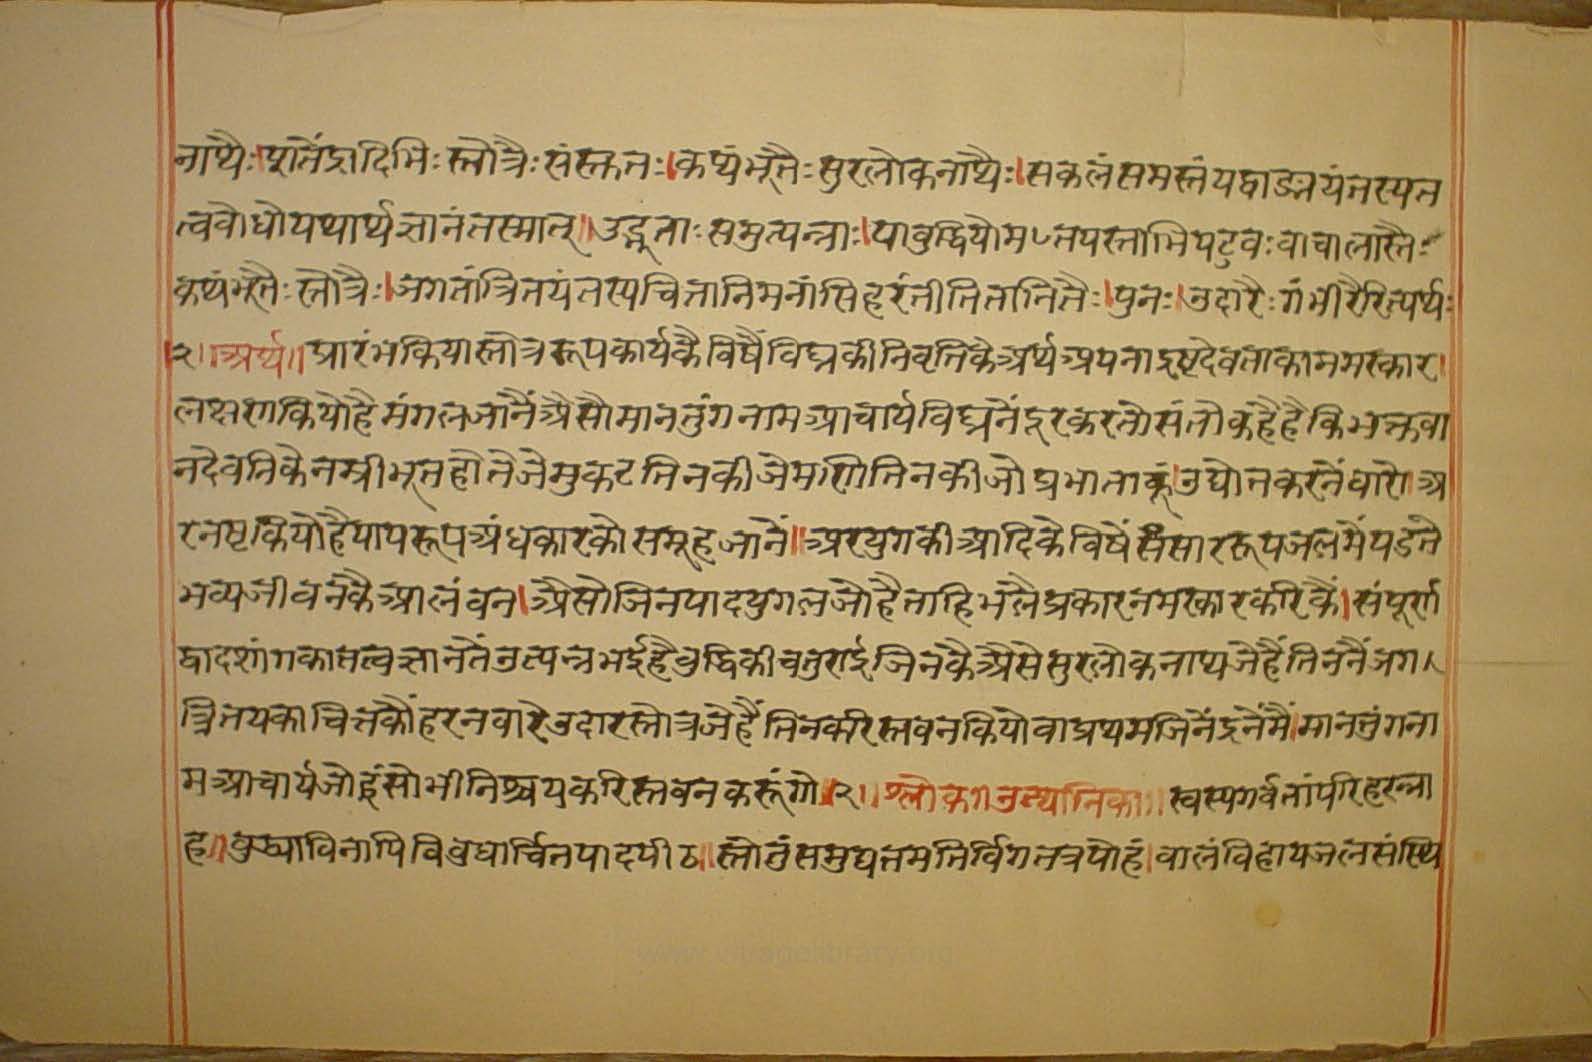 नाथैः।शतेंद्रादिभिः स्तोत्रैः संस्तुतः।कथंभूतैः सुरलोकनाथैः।सकलं समस्तं यद्वाङ्मयं तस्य त
त्वबोधो यथार्थज्ञानं तस्मात्॥उद्भूताः समुत्पन्नाः।या बुद्धियोमऽतयस्ताभि पटुवः वाचालास्तैः
कथंभूतैः स्तोत्रैः।जगतां त्रितयं तस्य चितानि मनांसि हरंतीति तानि तैः।पुनः।उदारैः गंभीरैरित्यर्थः
२॥अर्थ॥प्रारंभकियास्तोत्ररूपकार्यकै विषैं विघ्नकी निवृत्तिकै अर्थ अपना इष्टदेवताका नमस्कार।
लक्षण कियो है मंगल जानैं अैसौ मानतुंगनाम आचार्य विघ्ननैं दूर करतो संतो कहै है कि भक्तवा
न देवतिकै नम्रीभूत होते जे मुकट तिनकी जे मणि तिनकी जो प्रभा ताकूं।उद्योत करनें वारो।अ
र नष्ट कियो है पापरूप अंधकारको समूह जानें॥अर युगकी आदिकै विषैं संसाररूप जलमैं पडतै
भव्यजीवनकै आलंबन।अैसो जिनपादयुगल जो है ताहि भलै प्रकार नमस्कार करिकैं।संपूर्ण
द्वादशांगका तत्वज्ञानतैं उत्पन्न भई है बुद्धिकी चतुराई जिनकै अैसे सुरलोकनाथ जे हैं तिननैं जग।
त्रितयका चित्तकौं हरनवारे उदार स्तोत्र जे हैं तिनकरि स्तवन कियो वा प्रथमजिनेंद्रनें मैं।मानतुंगना
म आचार्य जो हूं सो भी निश्चयकरि स्तवन करूंगो॥२॥श्लोक॥उत्थानिका॥स्वस्य गर्वतां परिहरन्ना
ह॥बुद्ध्याविनापि विबुधार्चितपादपीठ॥स्तोतुं समुद्यतमतिर्विगतत्रपोहं।बालं विहाय जलसंस्थि